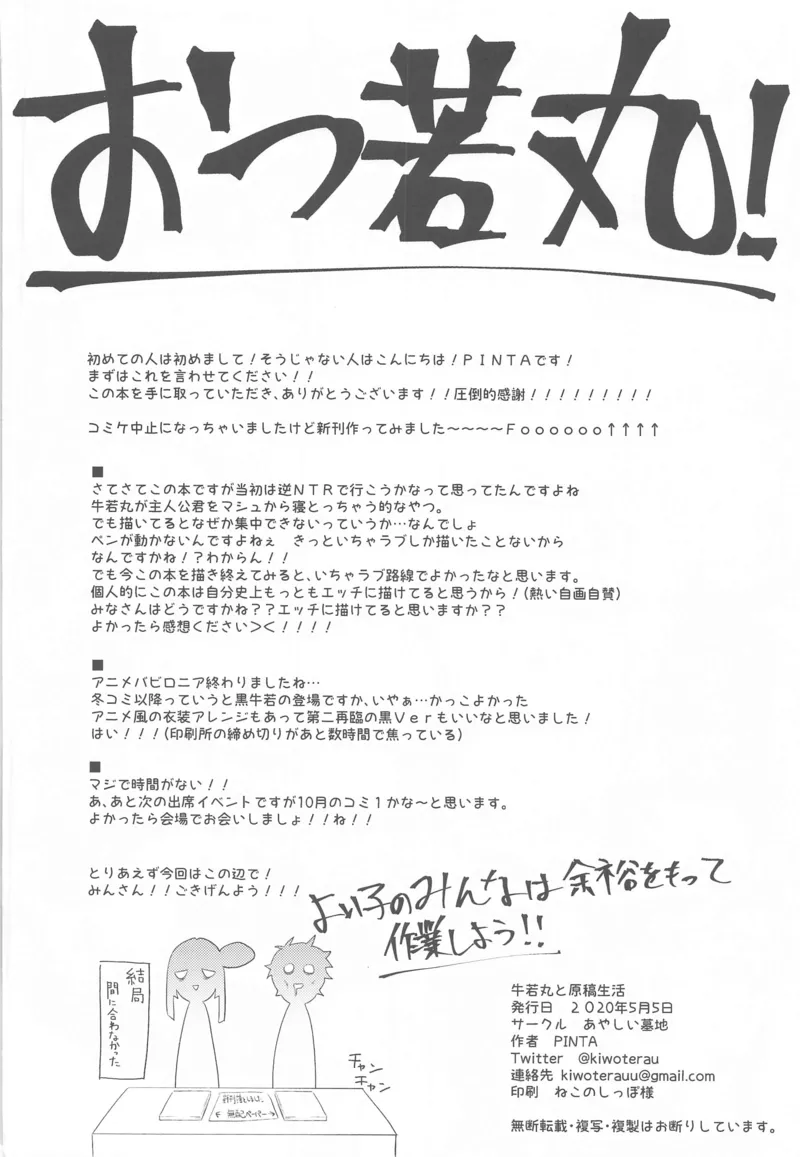 おつ若丸!
初めての人は初めまして!そうじゃない人はこんにちは!PINTAです!
まずはこれを言わせてください!!
この本を手に取っていただき、ありがとうございます!!圧倒的感謝!!!!!!!!!
コミケ中止になっちゃいましたけど新刊作ってみました~~~~Foooooo↑↑↑↑
■
さてさてこの本ですが当初は逆NTRで行こうかなって思ってたんですよね
牛若丸が主人公君をマシュから寝とっちゃう的なやつ。
でも描いてるとなぜか集中できないっていうか…なんでしょ
ペンが動かないんですよねぇ きっといちゃラブしか描いたことないから
なんですかね!?わからん!!
でも今この本を描き終えてみると、いちゃラブ路線でよかったなと思います。
個人的にこの本は自分史上もっともエッチに描けてると思うから!(熱い自画自賛)
みなさんはどうですかね??エッチに描けてると思いますか??
よかったら感想ください><!!!!
■
アニメバビロニア終わりましたね…
冬コミ以降っていうと黒牛若の登場ですか、いやぁ…かっこよかった
アニメ風の衣装アレンジもあって第二再臨の黒Verもいいなと思いました!
はい!!!(印刷所の締め切りがあと数時間で焦っている)
■
マジで時間がない!!
あ、あと次の出席イベントですが10月のコミ1かな~と思います。
よかったら会場でお会いしましょ!!ね!!
とりあえず今回はこの辺で!
みんさん!!ごきげんよう!!!
よい子のみんなは余裕をもって
作業しよう!!
結局
間に合わなかった
チャン
チャン
新刊落としました。
←無配ペーパー→
牛若丸と原稿生活
発行日 2020年5月5日
サークル あやしい墓地
作者 PINTA
Twitter @kiwoterau
連絡先 kiwoterauu@gmail.com
印刷 ねこのしっぽ様
無断転載・複写・複製はお断りしています。